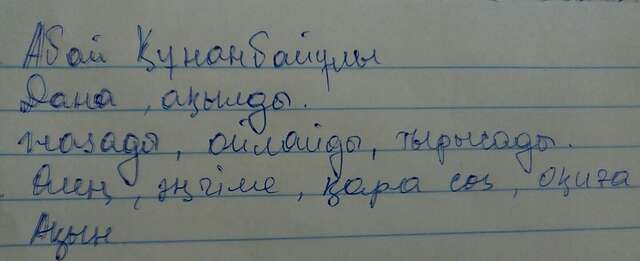 Абай Құнанбайұлы
Дана, ақылды.
жазады, ойлайды, тырысады.
Өлең, әңгіме, қара сөз, оқиға
Ақын